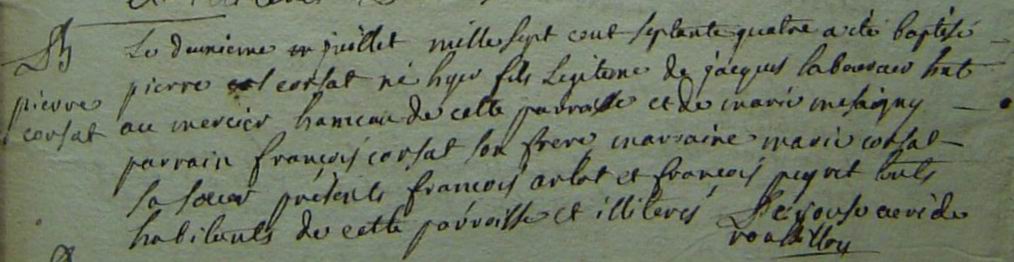 Le deuxieme juillet mille sept cent septante quatre a été baptisé
pierre corsat né hyer fils Legitime de jacques laboureur hat
pierre au mercier hameau de cette parroisse et de marie
corsat parrain françois corsat son frere marraine marie corsat
sa soeur présents françois arlot et françois peyret touts
habitants de cette parroisse et illiterés